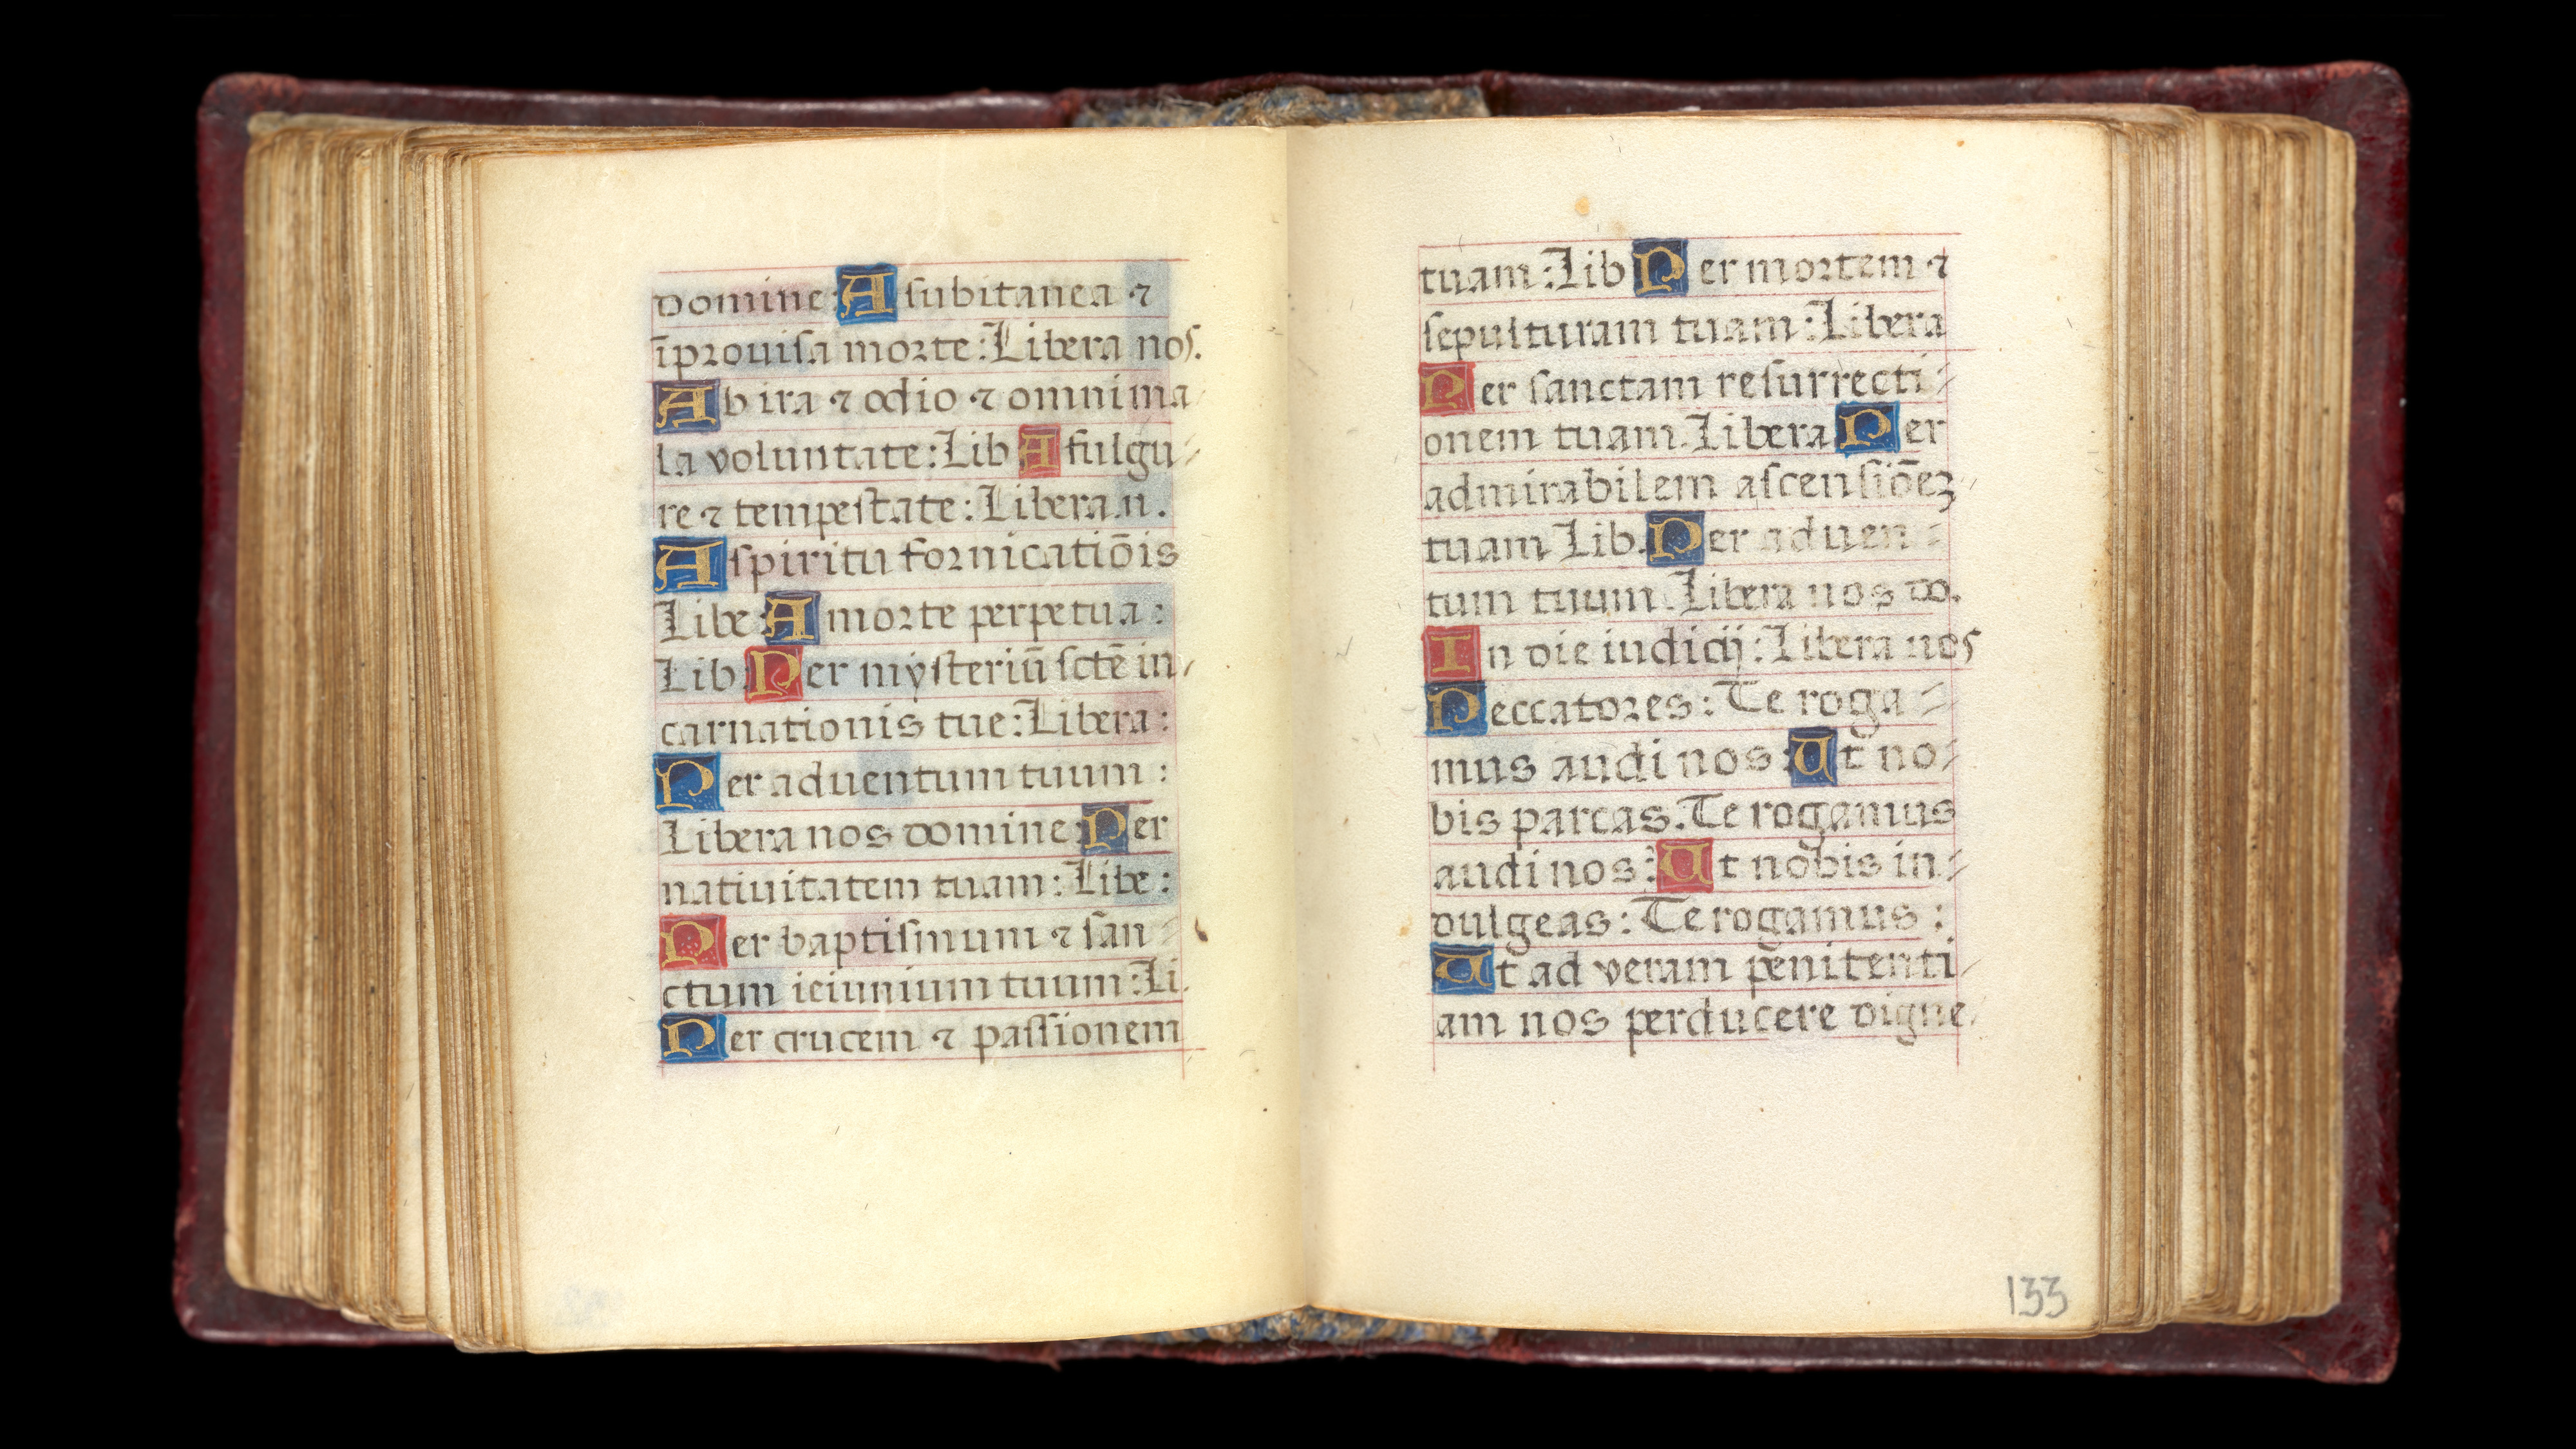 domine: A subitanea ⁊
īprouisa morte: Libera nos.
Ab ira ⁊ odio ⁊ omni ma
la voluntate: Lib A fulgu⸗
re ⁊ tempestate: Libera. n.
A spiritu fornicatiōis
Libe: A morte perpetua:
Lib. Per mysteriū sctē in⸗
carnationis tue: Libera:
Per aduentum tuum:
Libera nos domine: Per
natiuitatem tuam: Libe:
Per baptismum ⁊ san⸗
ctum ieiunium tuum: Li.
Per crucem ⁊ passionem
tuam: Lib Per mortem ⁊
sepulturam tuam: Libera
Per sanctam resurrecti⸗
onem tuam. Libera Per
admirabilem ascensiōeꝫ
tuam Lib. Per aduen⸗
tum tuum. Libera nos do.
In die iudicij: Libera nos
Peccatores: Te roga⸗
mus audi nos: Ut no⸗
bis parcas. Te rogamus
audi nos: Ut nobis in⸗
dulgeas: Te rogamus:
Ut ad veram penitenti⸗
am nos perducere digne⸗
133